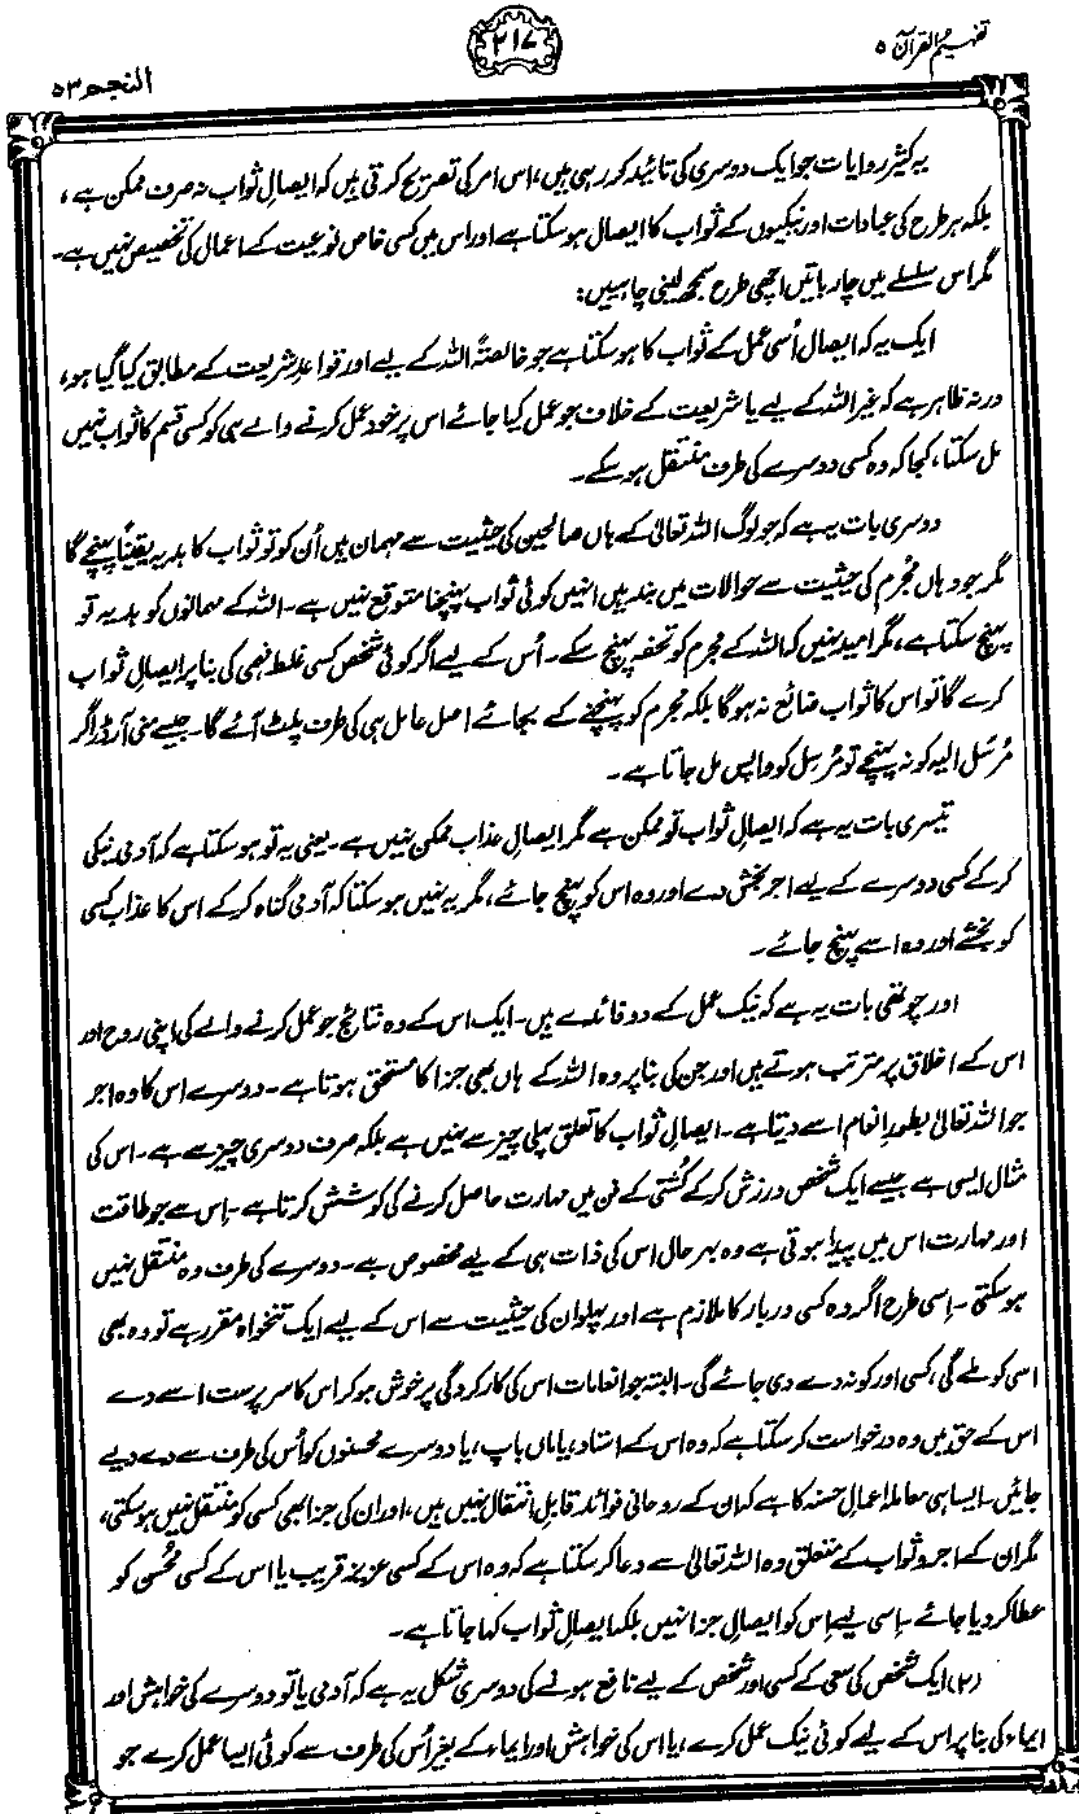 تفہیم القرآن ۵
۲۱۷
النجم ۵۳
یہ کثیر روایات جو ایک دوسری کی تائید کر رہی ہیں، اس امر کی تصریح کرتی ہیں کہ ایصالِ ثواب نہ صرف ممکن ہے،
بلکہ ہر طرح کی عبادات اور نیکیوں کے ثواب کا ایصال ہو سکتا ہے اور اس میں کسی خاص نوعیت کے اعمال کی تخصیص نہیں ہے۔
مگر اس سلسلے میں چار باتیں اچھی طرح سمجھ لینی چاہییں:
ایک یہ کہ ایصال اُسی عمل کے ثواب کا ہو سکتا ہے جو خالصتہً اللہ کے لیے اور قواعدِ شریعت کے مطابق کیا گیا ہو،
ورنہ ظاہر ہے کہ غیر اللہ کے لیے یا شریعت کے خلاف جو عمل کیا جائے اس پر خود عمل کرنے والے ہی کو کسی قسم کا ثواب نہیں
مل سکتا، کجا کہ وہ کسی دوسرے کی طرف منتقل ہو سکے۔
دوسری بات یہ ہے کہ جو لوگ اللہ تعالیٰ کے ہاں صالحین کی حیثیت سے مہمان ہیں اُن کو تو ثواب کا ہدیہ یقیناً پہنچے گا
مگر جو وہاں مُجرم کی حیثیت سے حوالات میں بند ہیں انہیں کوئی ثواب پہنچنا متوقع نہیں ہے۔ اللہ کے مہمانوں کو ہدیہ تو
پہنچ سکتا ہے، مگر امید نہیں کہ اللہ کے مجرم کو تحفہ پہنچ سکے۔ اُس کے لیے اگر کوئی شخص کسی غلط فہمی کی بنا پر ایصالِ ثواب
کرے گا تو اس کا ثواب ضائع نہ ہوگا بلکہ مجرم کو پہنچنے کے بجائے اصل عامل ہی کی طرف پلٹ آئے گا۔ جیسے منی آرڈر اگر
مُرسَل الیہ کو نہ پہنچے تو مُرسِل کو واپس مل جاتا ہے۔
تیسری بات یہ ہے کہ ایصالِ ثواب تو ممکن ہے مگر ایصالِ عذاب ممکن نہیں ہے۔ یعنی یہ تو ہو سکتا ہے کہ آدمی نیکی
کر کے کسی دوسرے کے لیے اجر بخش دے اور وہ اس کو پہنچ جائے، مگر یہ نہیں ہو سکتا کہ آدمی گناہ کر کے اس کا عذاب کسی
کو بخشے اور وہ اسے پہنچ جائے۔
اور چوتھی بات یہ ہے کہ نیک عمل کے دو فائدے ہیں۔ ایک اس کے وہ نتائج جو عمل کرنے والے کی اپنی روح اور
اس کے اخلاق پر مترتب ہوتے ہیں اور جن کی بنا پر وہ اللہ کے ہاں بھی جزا کا مُستحق ہوتا ہے۔ دوسرے اس کا وہ اجر
جو اللہ تعالیٰ بطورِ انعام اسے دیتا ہے۔ ایصالِ ثواب کا تعلق پہلی چیز سے نہیں ہے بلکہ صرف دوسری چیز سے ہے۔ اس کی
مثال ایسی ہے جیسے ایک شخص ورزش کر کے کُشتی کے فن میں مہارت حاصل کرنے کی کوشش کرتا ہے۔ اِس سے جو طاقت
اور مہارت اس میں پیدا ہوتی ہے وہ بہر حال اس کی ذات ہی کے لیے مخصوص ہے۔ دوسرے کی طرف وہ منتقل نہیں
ہو سکتی۔ اِسی طرح اگر وہ کسی دربار کا ملازم ہے اور پہلوان کی حیثیت سے اس کے لیے ایک تنخواہ مقرر ہے تو وہ بھی
اسی کو ملے گی، کسی اور کو نہ دے دی جائے گی۔ البتہ جو انعامات اس کی کارکردگی پر خوش ہو کر اس کا سرپرست اسے دے
اس کے حق میں وہ درخواست کر سکتا ہے کہ وہ اس کے استاد، یا ماں باپ، یا دوسرے محسنوں کو اُس کی طرف سے دے دیے
جائیں۔ ایسا ہی معاملہ اعمالِ حسنہ کا ہے کہ ان کے روحانی فوائد قابلِ انتقال نہیں ہیں، اور ان کی جزا بھی کسی کو منتقل نہیں ہو سکتی،
مگر ان کے اجر و ثواب کے متعلق وہ اللہ تعالیٰ سے دعا کر سکتا ہے کہ وہ اس کے کسی عزیز قریب یا اس کے کسی مُحسن کو
عطا کر دیا جائے۔ اِسی لیے اِس کو ایصالِ جزا نہیں بلکہ ایصالِ ثواب کہا جاتا ہے۔
(۲) ایک شخص کی سعی کے کسی اور شخص کے لیے نافع ہونے کی دوسری شکل یہ ہے کہ آدمی یا تو دوسرے کی خواہش اور
ایماء کی بنا پر اس کے لیے کوئی نیک عمل کرے، یا اس کی خواہش اور ایماء کے بغیر اُس کی طرف سے کوئی ایسا عمل کرے جو